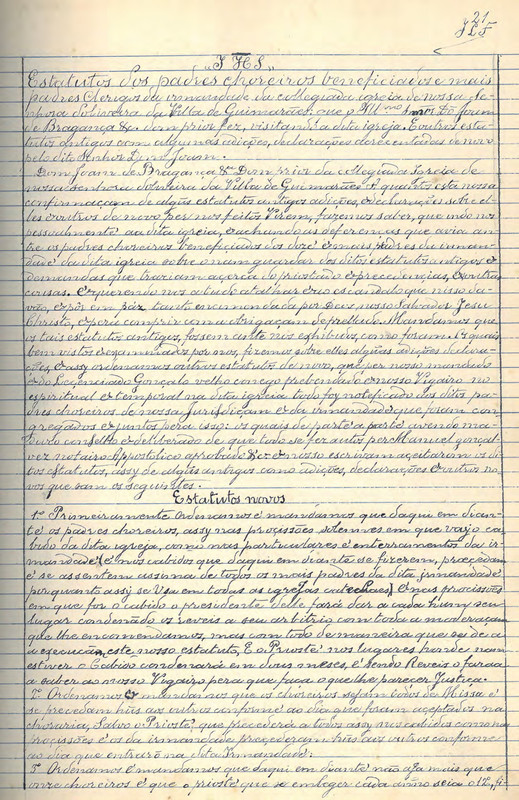 21
"I H S"
Estatutos dos padres choreiros beneficiados e mais
padres Clerigos da irmandade da collegiada igreja de nossa Se-
nhora dolivaira da Villa de Guimarães: que o Illmo Snor Do Joam
de Bragança &. dom prior fez, visitando a dita igreja. E outros esta-
tutos antigos com algumas adições, declarações acrescentadas de novo
pelo dito Senhor Dom Joam.
Dom Joam de Bragança & Dom Prior da collegiada Igreia de
nossa senhora doliveira da Villa de Guimarães &. A quantos esta nossa
confirmaçam de algũs estatutos antigos adições, e declarações sobre el-
les e outros de novo per nos feitos Virem, fazemos saber, que indo nos
pessoalmente aa dita igreja, e achando as deferenças que avia an-
tre os padres choreiros beneficiados dos doze e mais padres da irman-
dade da dita igreja sobre o nam guardar dos ditos estatutos antigos e
demandas que traziam açerca do priostado e precedencias, e outras
cousas. E querendo nos a tudo atalhar e ao escandalo que nisso da-
vão, e pôr em paz tanto encomendada por Deus nosso Salvador Jesu
Christo, e pera comprir com a obrigaçam de prellado. Mandamos que
os tais estatutos antigos, fossem ante nos exhibidos, como foram. Os quais
bem vistos e examinados por nos, fizemos sobre elles algũas adições declara-
ções, e assy ordenamos outros estatutos de novo, que per nosso mandado
e do Leçençiado Gonçalo velho conego prebendado e nosso Vigairo no
espiritual e temporal na dita igreja todo foy notificado aos ditos pa-
dres choreiros de nossa jurisdiçam e da irmandade que foram con-
gregados e juntos pera isso: os quais de parte a parte avendo ma-
duro conselho e deliberado de que todo se fez autos per Manuel gonçal-
vez notairo Appostolico aprobado & e nosso escrivam açeitaram os di-
tos estatutos, assy de algũs antigos como adições, declarações e outros no-
vos que sam os seguintes.
Estatutos novos
1º Primeiramente Ordenamos e mandamos que daqui em dian-
te os padres choreiros, assy nas proçissões solemnes em que vay o ca-
bido da dita igreja, como nas particulares e enterramentos da ir-
mandade e nos cabidos que daqui em diante se fizerem, precedam
e se assentem assima de todos os mais padres da dita irmandade
porquanto assy se Usa em todas as igrejas cathedraes, E nas proçissões
em que for o cabido o presidente delle fará dar a cada hum seu
lugar condenãdo os reveis a seu arbitrio com toda a moderaçam
que lhe encomendamos, mas com todo de maneira que se dê a
a execuçam este nosso estatuto, E o Prioste nos lugares honde nam
estiver o Cabido condenará em dous meses, e sendo Reveis o fará
a saber ao nosso Vigairo pera que faca o que lhe parecer Justiça.
2º Ordenamos e mandamos que os choreiros sejam todos de Missa e
se precedam hũs aos outros conforme ao dia que foram aceptados na
choraria, Salvo o Prioste que precederá a todos assy nos cabidos como nas
proçissões e os da irmandade precederam hũs aos outros conforme
ao dia que entrarã na dita Irmandade.
3º Ordenamos e mandamos que daqui em diante não aja mais que
onze choreiros e que o prioste que se emleger cada anno seja o 12, fi-